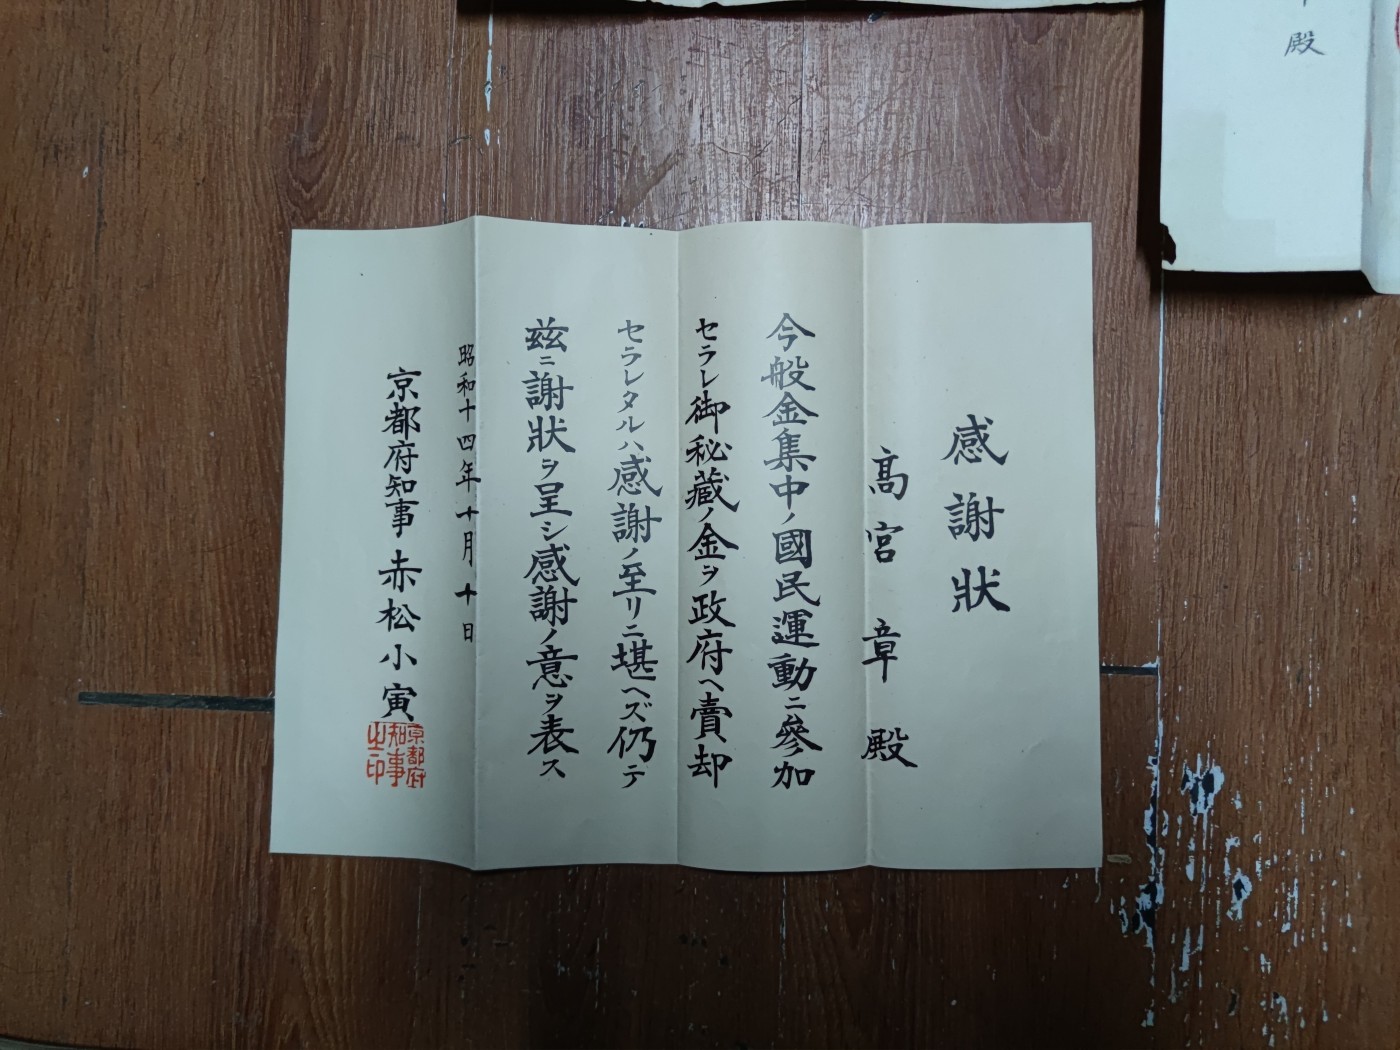 感謝狀
髙宮章殿
今般金集中ノ國民運動ニ參加
セラレ御秘藏ノ金ヲ政府ヘ賣却
セラレタルハ感謝ノ至リニ堪ヘズ仍テ
茲ニ謝狀ヲ呈シ感謝ノ意ヲ表ス
昭和十四年十月十日
京都府知事赤松小寅
京都府
知事
之印
殿